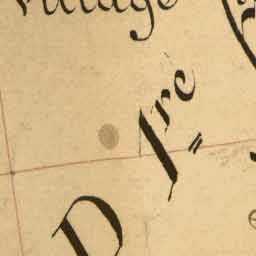 Village
D
1re